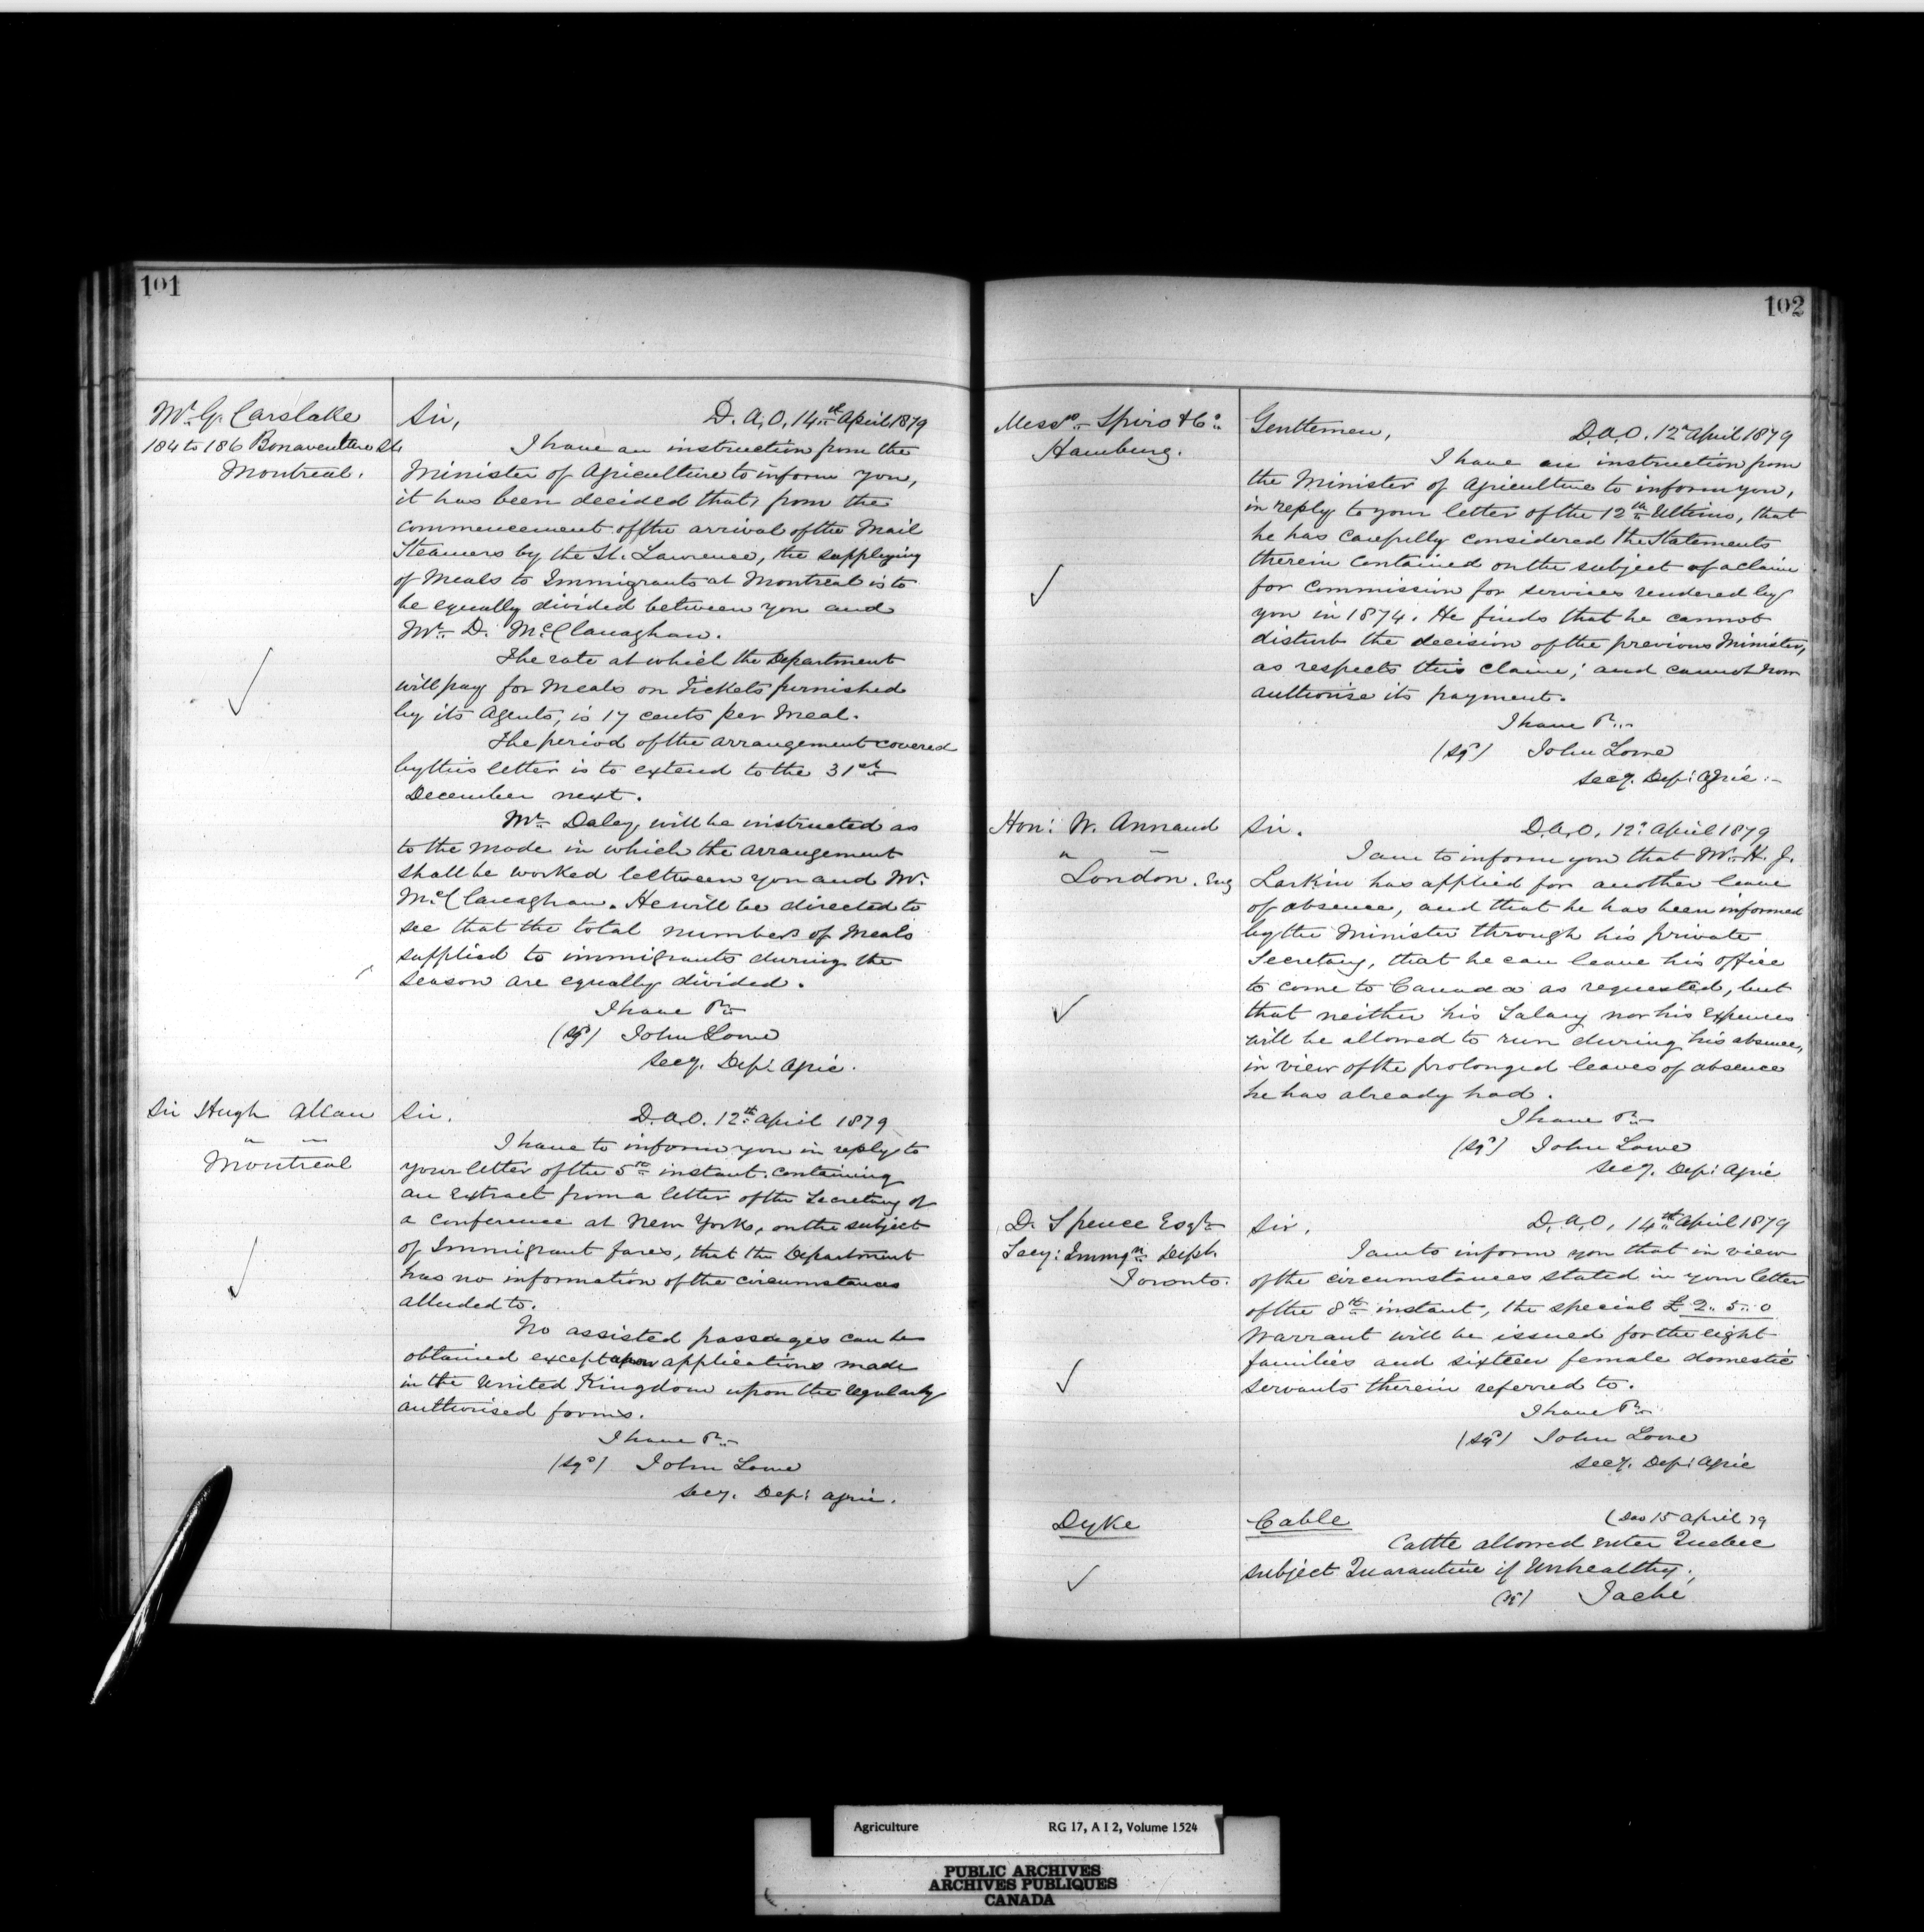 101
Mr. G. Carslake
184 to 186 Bonaventure St.
Montreal.
Sir, D. A, O, 14th April 1879
I have an instruction from the
Minister of Agriculture to inform you,
it has been decided that, from the
commencement of the arrival of the Mail
Steamers by the St. Lawrence, the supplying
of Meals to Immigrants at Montreal is to
be equally divided between you and
Mr. D. McClanaghan.
The rate at which the Department
will pay for Meals on Tickets furnished
by its Agents, is 17 cents per Meal.
The period of the arrangement covered
by this letter is to extend to the 31st
December next.
Mr. Daley, will be instructed as
to the Mode in which the arrangement
shall be worked between you and Mr.
McClanaghan. He will be directed to
see that the total numbers of Meals
supplied to immigrants during the
season are equally divided.
I have &c
(Sgd) John Lowe
Secy. Dep: Agric.
Sir Hugh Allan
" "
Montreal
Sir. D.A.O. 12th April 1879
I have to inform you in reply to
your letter of the 5th instant. containing
an extract from a letter of the Secretary of
a conference at New York, on the subject
of Immigrant fares, that the Department
has no information of the circumstances
alluded to.
No assisted passages can be
obtained except upon applications made
in the United Kingdom upon the regularly
authorised forms.
I have &c
(Sgd) John Lowe
Secy. Dep: Agric.
102
Messrs. Spiro & Co:
Hamburg.
Gentlemen, D.A.O. 12 April 1879
I have an instruction from
the Minister of Agriculture to inform you,
in reply to your letter of the 12th Ultimo, that
he has carefully considered the Statements
therein contained on the subject of a claim
for commission for services rendered by
you in 1874. He finds that he cannot
disturb the decision of the previous Minister,
as respects this claim; and cannot now
authorise its payment.
I have &c
(Sgd) John Lowe
Secy. Dep: Agric.
Hon: W. Annand
" "
London. Eng
Sir. D.A.O. 12: April 1879
I am to inform you that Mr. H. J.
Larkin has applied for another leave
of absence, and that he has been informed
by the Minister through his private
Secretary, that he can leave his office
to come to Canada as requested, but
that neither his Salary nor his Expenses
will be allowed to run during his absence,
in view of the prolonged leaves of absence
he has already had.
I have &c
(Sgd) John Lowe
Secy. Dep: Agric
D. Spence Esqr
Secy: Immgn. Dept.
Toronto.
Sir, D. A. O, 14th April 1879
I am to inform you that in view
of the circumstances stated in your letter
of the 8th instant, the special £ 2.. 5.. 0
Warrant will be issued for the eight
families and sixteen female domestic
servants therein referred to.
I have &c
(Sgd) John Lowe
Secy. Dep: Agric
Dyke
Cable (Dao 15 April 79
Cattle allowed enter Quebec
subject Quarantine if Unhealthy,
(Sd) Taché
Agriculture RG 17, A I 2, Volume 1524
PUBLIC ARCHIVES
ARCHIVES PUBLIQUES
CANADA